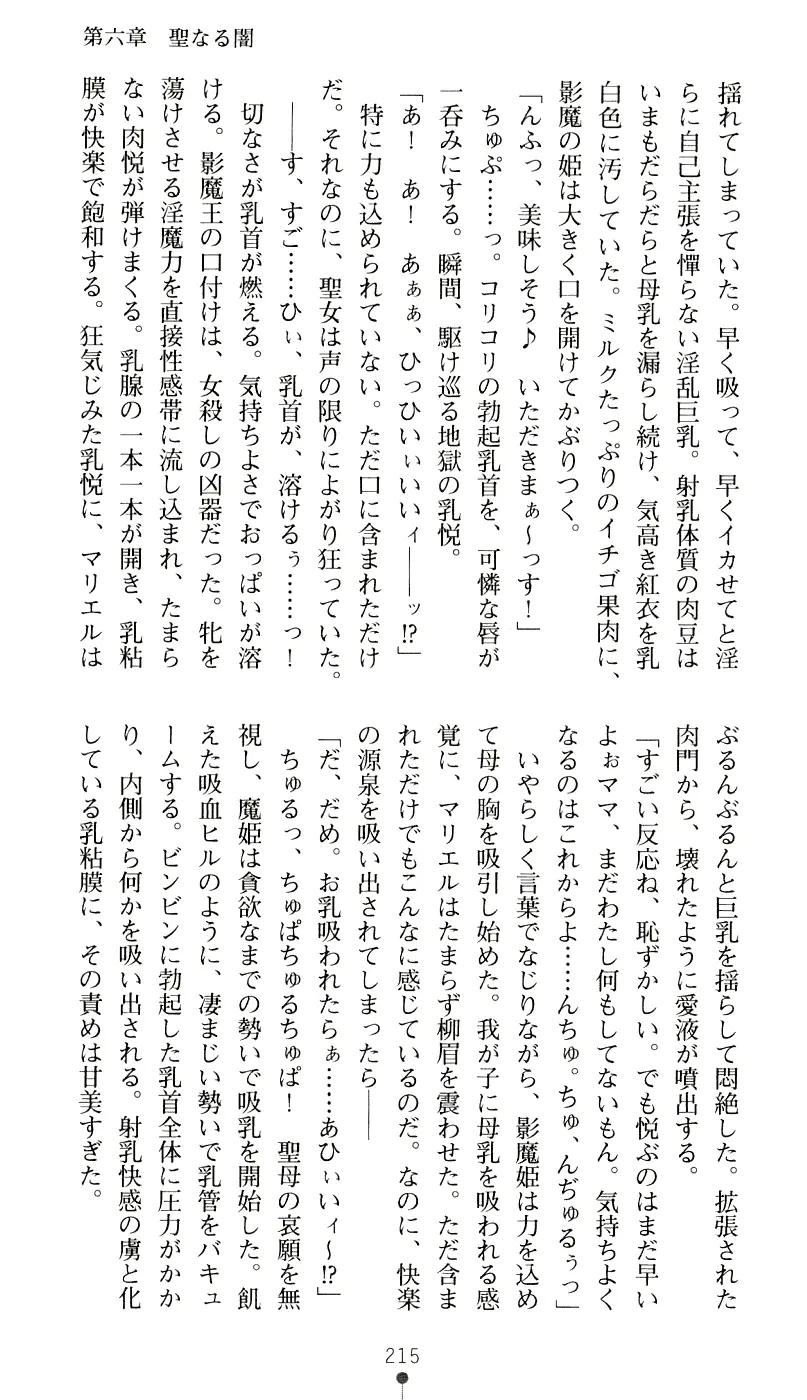 第六章　聖なる闇
揺れてしまっていた。早く吸って、早くイカせてと淫
らに自己主張を憚らない淫乱巨乳。射乳体質の肉豆は
いまもだらだらと母乳を漏らし続け、気高き紅衣を乳
白色に汚していた。ミルクたっぷりのイチゴ果肉に、
影魔の姫は大きく口を開けてかぶりつく。
「んふっ、美味しそう♪　いただきまぁ～っす！」
ちゅぷ……っ。コリコリの勃起乳首を、可憐な唇が
一呑みにする。瞬間、駆け巡る地獄の乳悦。
「あ！　あ！　あぁぁ、ひっひいぃいいィ――ッ!?」
特に力も込められていない。ただ口に含まれただけ
だ。それなのに、聖女は声の限りによがり狂っていた。
――す、すご……ひぃ、乳首が、溶けるぅ……っ！
切なさが乳首が燃える。気持ちよさでおっぱいが溶
ける。影魔王の口付けは、女殺しの凶器だった。牝を
蕩けさせる淫魔力を直接性感帯に流し込まれ、たまら
ない肉悦が弾けまくる。乳腺の一本一本が開き、乳粘
膜が快楽で飽和する。狂気じみた乳悦に、マリエルは
ぶるんぶるんと巨乳を揺らして悶絶した。拡張された
肉門から、壊れたように愛液が噴出する。
「すごい反応ね、恥ずかしい。でも悦ぶのはまだ早い
よぉママ、まだわたし何もしてないもん。気持ちよく
なるのはこれからよ……んちゅ。ちゅ、んぢゅるぅっ」
いやらしく言葉でなじりながら、影魔姫は力を込め
て母の胸を吸引し始めた。我が子に母乳を吸われる感
覚に、マリエルはたまらず柳眉を震わせた。ただ含ま
れただけでもこんなに感じているのだ。なのに、快楽
の源泉を吸い出されてしまったら――
「だ、だめ。お乳吸われたらぁ……あひぃいィ～!?」
ちゅるっ、ちゅぱちゅるちゅぱ！　聖母の哀願を無
視し、魔姫は貪欲なまでの勢いで吸乳を開始した。飢
えた吸血ヒルのように、凄まじい勢いで乳管をバキュ
ームする。ビンビンに勃起した乳首全体に圧力がかか
り、内側から何かを吸い出される。射乳快感の虜と化
している乳粘膜に、その責めは甘美すぎた。
215